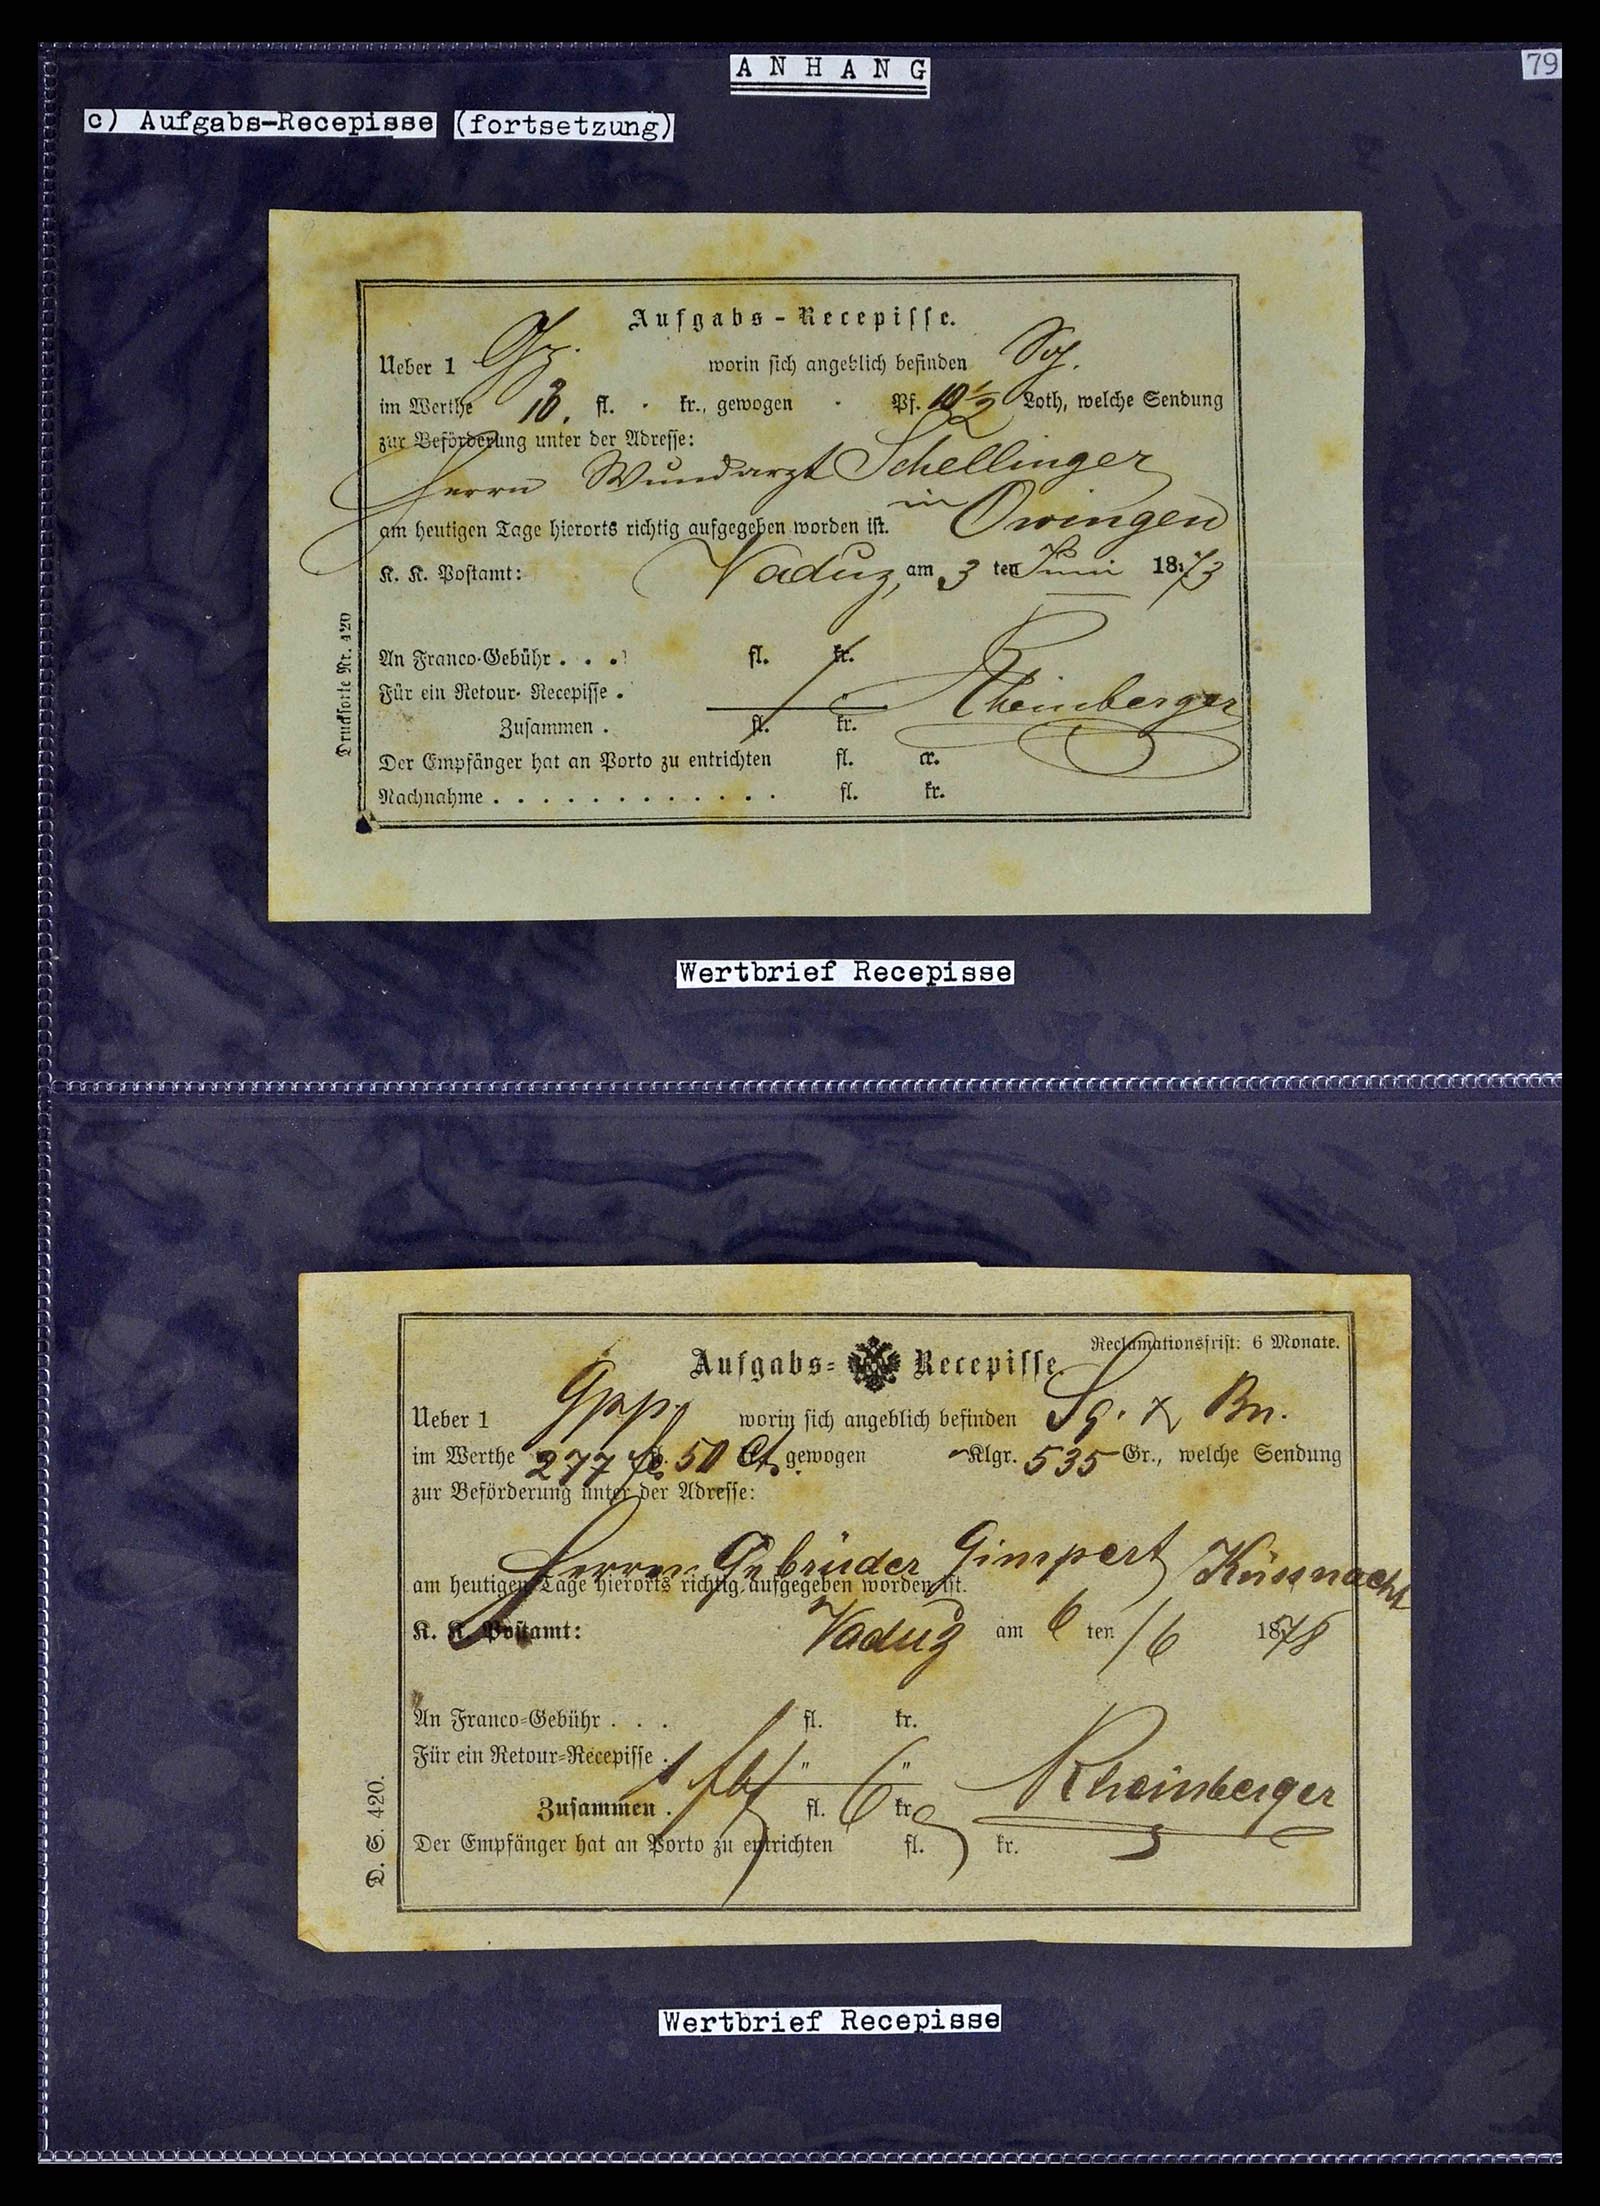 ANHANG
79
c) Aufgabs-Recepisse (fortsetzung)
Aufgabs-Recepisse.
Ueber 1 worin sich angeblich befinden
im Werthe fl. kr., gewogen Pf. 10 1/2 Loth, welche Sendung
zur Beförderung unter der Adresse:
Herrn Wundarzt Schellinger
in Owingen
am heutigen Tage hierorts richtig aufgegeben worden ist.
K. K. Postamt: Vaduz, am 3 ten Juni 1873
An Franco-Gebühr . . . fl. kr.
Für ein Retour-Recepisse .
Rheinberger
Zusammen . fl. kr.
Der Empfänger hat an Porto zu entrichten fl. kr.
Nachnahme . . . . . . . . . . . . . fl. kr.
Drucksorte Nr. 420
Wertbrief Recepisse
Reclamationsfrist: 6 Monate.
Aufgabs- Recepisse
Ueber 1 worin sich angeblich befinden
im Werthe 277 50 gewogen Klgr. 535 Gr., welche Sendung
zur Beförderung unter der Adresse:
Herren Gebrüder Gimpert Küssnacht
am heutigen Tage hierorts richtig aufgegeben worden ist.
K. K. Postamt: Vaduz am 6 ten /6 1878
An Franco-Gebühr . . . fl. kr.
Für ein Retour-Recepisse . " "
Rheinberger
Zusammen . fl. 6 kr
Der Empfänger hat an Porto zu entrichten fl. kr.
D. S. 420.
Wertbrief Recepisse